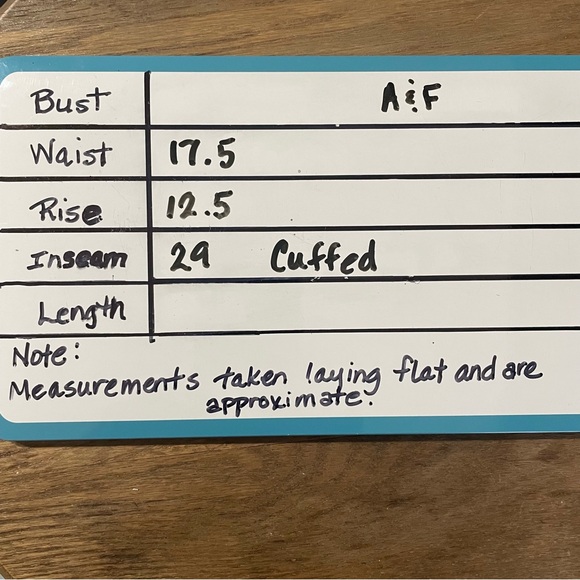 Bust A&F
Waist 17.5
Rise 12.5
Inseam 29 Cuffed
Length
Note:
Measurements taken laying flat and are
approximate.